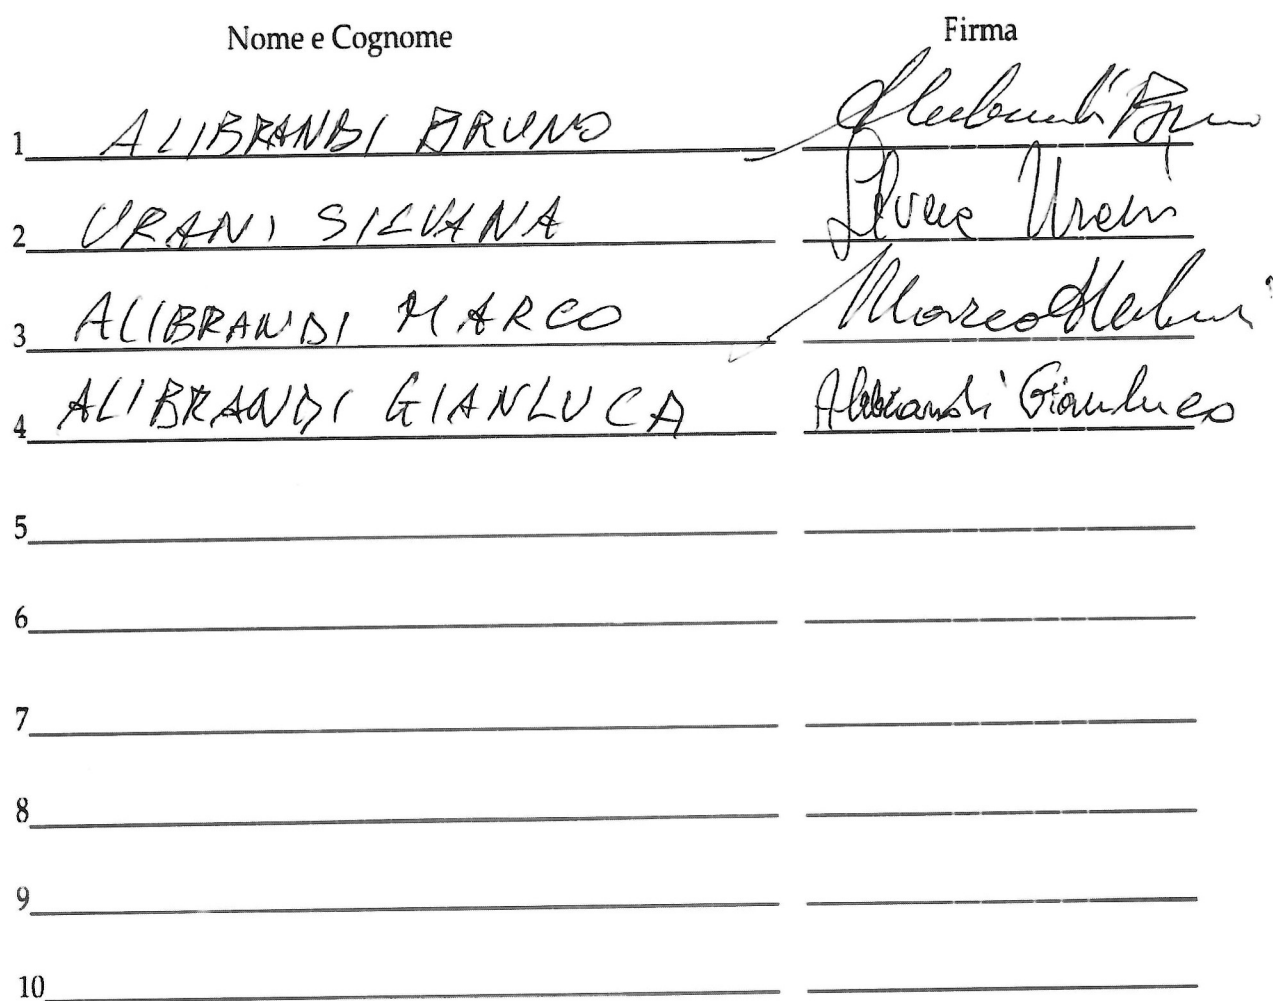 Nome e Cognome Firma
1 ALIBRANDI BRUNO Alibrandi Bruno
2 URANI SILVANA Silvana Urani
3 ALIBRANDI MARCO Marco Alibrandi
4 ALIBRANDI GIANLUCA Alibrandi Gianluca
5
6
7
8
9
10